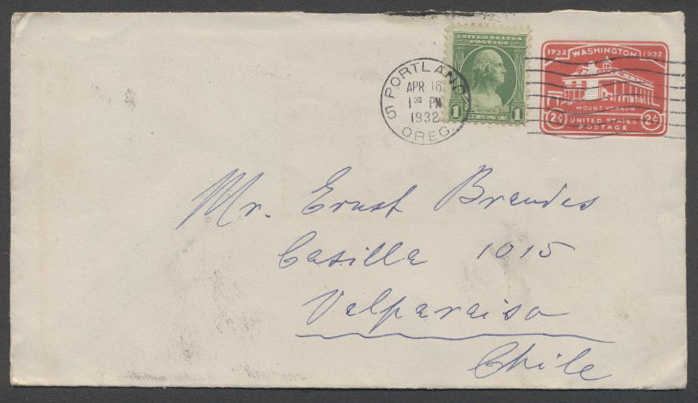 1732 WASHINGTON 1932
MOUNT VERNON
2¢ UNITED STATES 2¢
POSTAGE
UNITED STATES
POSTAGE
1 CENT 1
PORTLAND 5
APR 16
1 30 PM
1932
OREG.
Mr. Ernst Brandes
Casilla 1015
Valparaiso
Chile